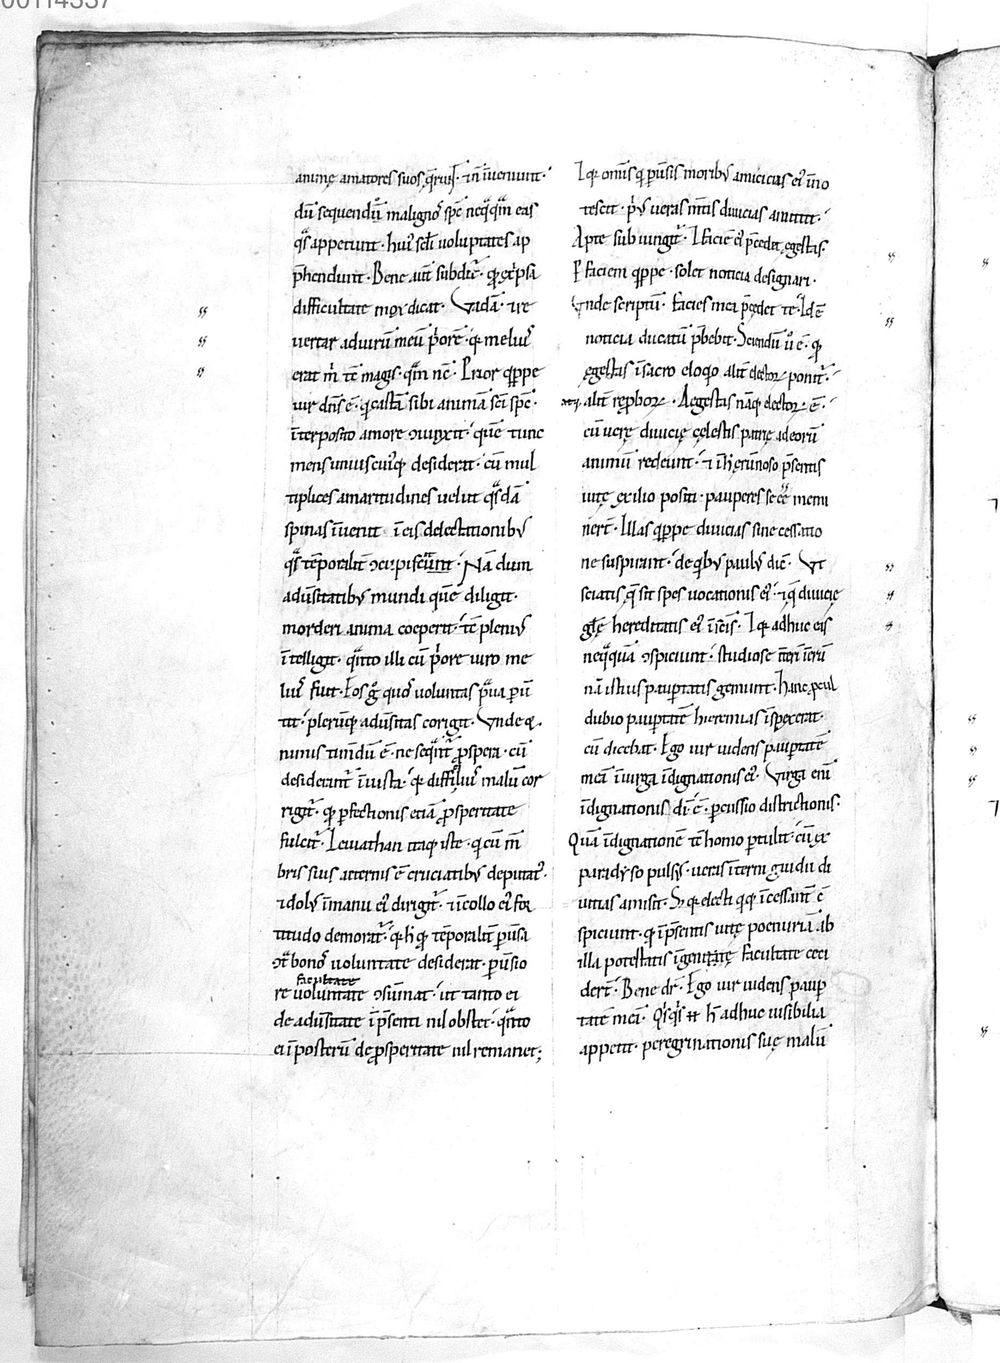 00114337
animę amatores suos q̄runt · ⁊ n̄ inueniunt ·
dū sequendū malignoꝝ spc̄ neq̄q̄m eas
q̄s appetunt · hui sc̄li uoluptates ap
p̄hendunt · Bene aūt subdit̄ · q̄ ex ip̄sa
difficultate mordicat · Vadā · ⁊ re
uertar ad uirū meū p̄ore · q̄ melius
erat m̄ tē magis · q̄m nc̄ · Prior q̄ppe
uir dn̄s ē · q̄ castā sibi animā sc̄i sp̄c ·
īterposito amore ꝯiunxit · quē tunc
mens uniuscuiꝙ desiderat · cū mul
tiplices amaritudines uelut q̄sdā
spinas īuenit īeis delectationibꝰ
q̄s tēporalit̄ ꝯcupiscunt · Nā dum
aduersitatibꝰ mundi quē diligit ·
morderi anima coeperit · tē plenius
ītelligit · q̄nto illi cū p̄ore uiro me
lius fuit · Eos g̊ quoꝝ voluntas p̄ua p̄uer
tit · plerūq̨ aduersitas corrigit · Vnde ⁊
nimis timdū ē · ne seq̄nt̄ ꝓspera · cū
desiderant̄ iniusta · q̄ difficiliꝰ malū cor
rigit̄ · q̄ p̄fectionis etiā ꝓsperitate
fulcit̄ · Leuiathan itaq̨ iste · q̄ cū mē
bris suis aeternis ē cruciatibꝰ deputatꝰ ·
⁊ dolꝰ īmanu eiꝰ dirigit̄ · ⁊ īcollo eiꝰ for
titudo demorat̄ · q̄ h̄ q̄ tēporalit̄ p̄uersa
ꝯt̄ bonos uoluntate desiderat · p̄uersio
facultate
re uoluntate ꝯsūmat · ut tanto ei
de aduersitate īp̄senti nil obstet · q̄nto
ei īposterū de ꝓsperitate nil remanet ;
I q̄ omīs q̄ p̄uersis moribꝰ amicicias eiꝰ īno
tescit · p̄us ueras mentis diuicias amittit ·
Apte subiungit̄ · I faciē eiꝰ p̄cedit egestas ·
P faciem q̄ppe · solet noticia designari ·
Vnde scriptū · Facies mea p̄cedet te · Id ē
noticia ducatū p̄bebit · Sciendū ū ē · q̄
egestas īsacro eloq̄o alit̄ electoꝝ ponit̄ ·
alit̄ rep̄boꝝ · Aegestas nāq̨ electoꝝ · ē ·
cū uerę diuicię cęlestis patrię ad eorū
animū redeunt · ⁊ īh̄ęrūnoso p̄sentis
uitę exilio positi · pauperes se ēē memi
nerīt · Illas q̄ppe diuicias sine cessatio
ne suspirant · de q̄bꝰ paulꝰ dic̄ · Vt
sciatis q̄ sit spes uocationis eiꝰ · ⁊ q̄ diuicię
glę hereditatis eiꝰ īsc̄is · I q̄ adhuc eis
neq̄quā ꝯspiciunt · studiose
nā istius paup̄tatis gemunt · Hanc p̄cul
dubio paup̄tatē hieremias īspexerat ·
cū dicebat · Ego uir uidens paup̄tatē
meā īuirga īdignationis eiꝰ · Virga enī
īdignationis dī ē · p̄cussio districtionis ·
Quā īdignationē tē homo p̄tulit · cū ex
paradyso pulsꝰ · ueris īterni gaudii di
uitias amisit · Sꝫ q̄ electi q̄q̨ īcessant̄ ꝯ
spiciunt · q̄ īp̄sentis uitę poenuriā ab
illa potestatis īgenitę facultate ceci
derīt · Bene dr̄ · Ego uir uidens paup
tatē meā · Q̄sq̄s h̄ adhuc uisibilia
appetit · peregrinationis suę malū